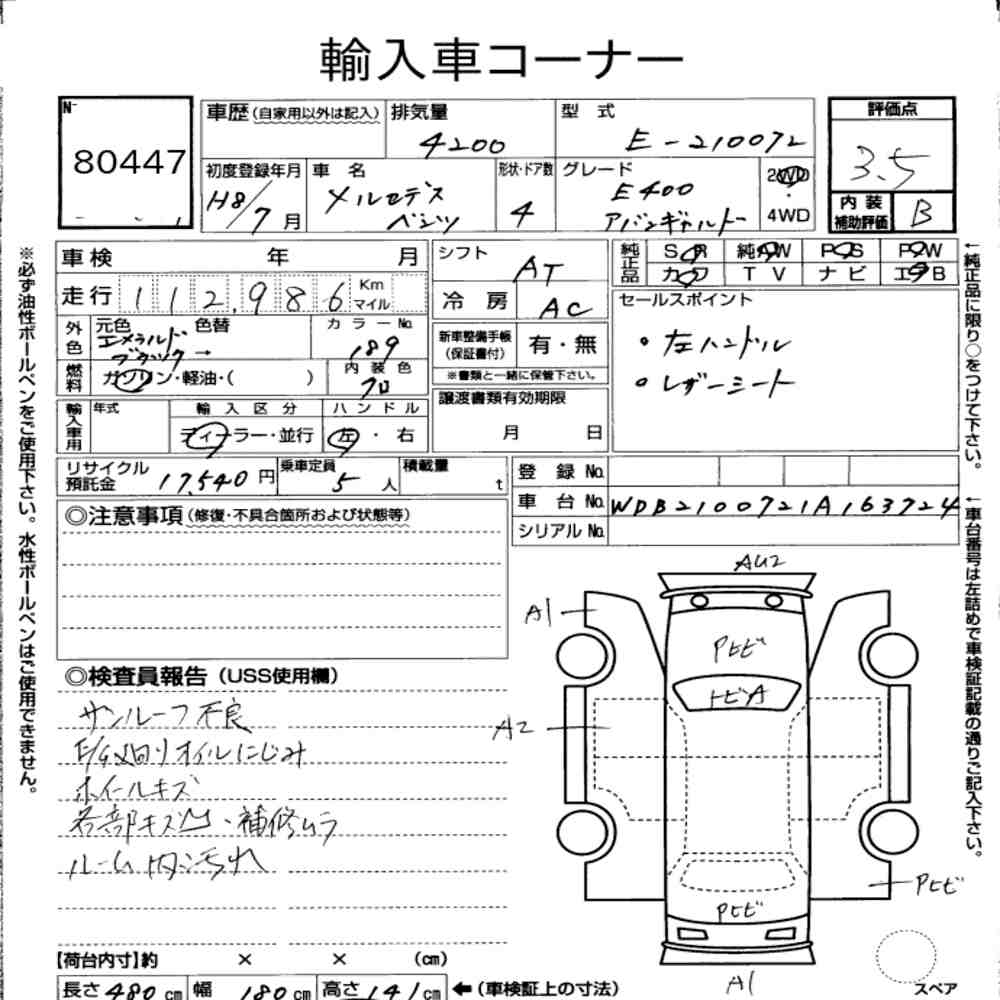 輸入車コーナー
No 80447
車歴(自家用以外は記入) 排気量 4200 型 式 E-210072 評価点 3.5
初度登録年月 H8/7月 車 名 メルセデス ベンツ 形状・ドア数 4 グレード E400 アバンギャルド 2WD 4WD 内装補助評価 B
車検 年 月 シフト AT 純正品 SR 純AW PS PW
カワ TV ナビ エB
走行 112,986 Km マイル 冷 房 AC セールスポイント
・左ハンドル
・レザーシート
外色 元色 エメラルドブラック → 色替 カラーNo. 189 新車整備手帳(保証書付) 有・無
※書類と一緒に保管下さい。
燃料 ガソリン・軽油・( ) 内装色 クロ 譲渡書類有効期限 月 日
輸入車用 年式 輸入区分 ディーラー・並行 ハンドル 左・右
リサイクル預託金 17,540円 乗車定員 5人 積載量 t 登録No.
車台No. WDB2100721A163724
シリアルNo.
◎注意事項(修復・不具合箇所および状態等)
◎検査員報告(USS使用欄)
サンルーフ不良
E/G廻りオイルにじみ
ホイールキズ
各部キズ凹・補修ムラ
ルーム内汚れ
AU2
A1
Pヒビ
トビA
A2
Pヒビ
Pヒビ
A1
スペア
【荷台内寸】約 × × (cm)
長さ 480cm 幅 180cm 高さ 141cm ←(車検証上の寸法)
※必ず油性ボールペンをご使用下さい。水性ボールペンはご使用できません。
←純正品に限り○をつけて下さい。
←車台番号は左詰めで車検証記載の通りご記入下さい。